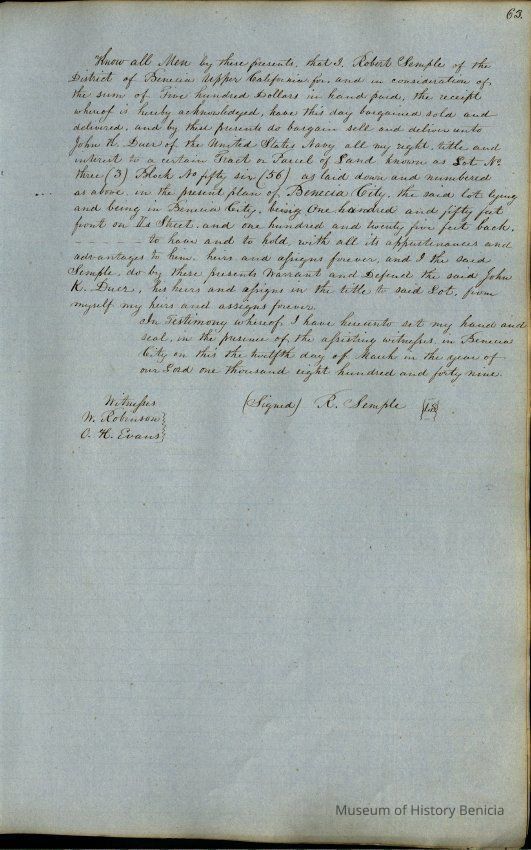 63.
Know all Men by these presents, that I, Robert Semple of the
District of Benecia Upper California for, and in consideration of,
the sum of Five hundred Dollars in hand paid, the receipt
whereof is hereby acknowledged, have this day bargained sold and
delivered, and by these presents do bargain sell and deliver unto
John K. Duer of the United States Navy all my right, title and
interest to a certain Tract or Parcel of Land known as Lot No
three (3) Block No fifty six (56) as laid down and numbered
as above, in the present plan of Benecia City, the said lot lying
and being in Benecia City, being One hundred and fifty feet
front on Street, and one hundred and twenty five feet back,
to have and to hold, with all its appurtenances and
advantages to him, heirs and assigns forever, and I the said
Semple, do by these presents Warrant and Defend the said John
K. Duer, his heirs and assigns in the title to said Lot, from
myself my heirs and assigns forever.
In Testimony whereof, I have hereunto set my hand and
seal, in the presence of, the assisting witnesses, in Benecia
City on this the twelfth day of March in the year of
our Lord one thousand eight hundred and forty nine.
Witnesses (Signed) R. Semple
W. Robinson
O. H. Evans
Museum of History Benicia